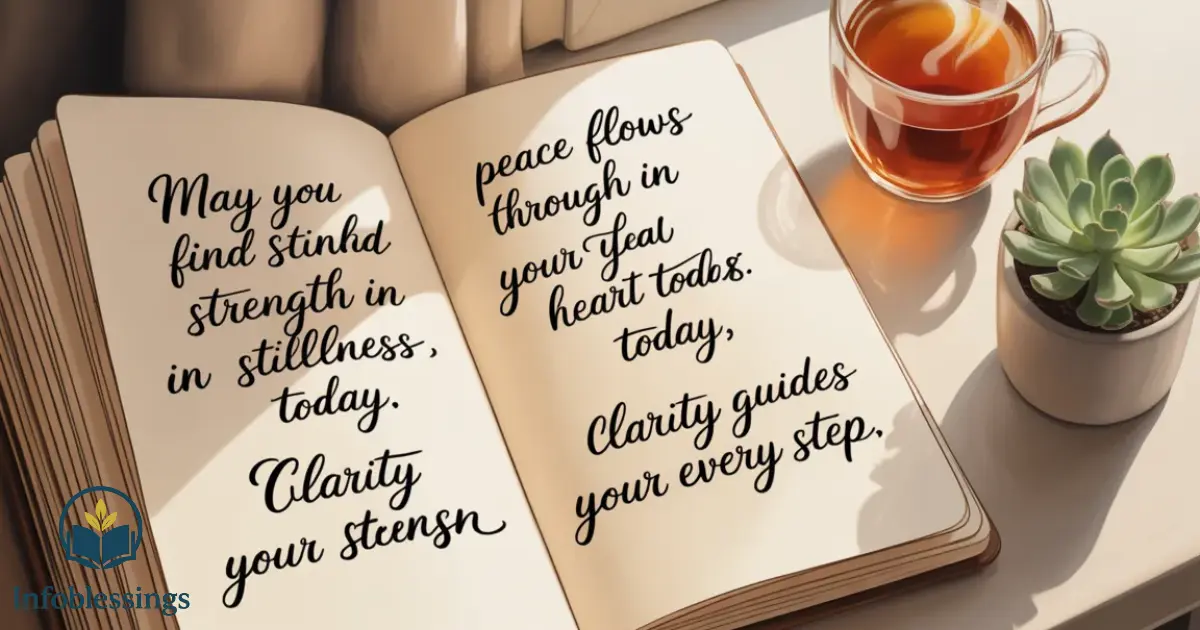 May you
find stinhd
strength in
in stilllness,
today.
Clarity
your streensn
peace flows
through in
your Yeal
heart todbs.
today,
Clarity guides
your every step,
Infoblessings